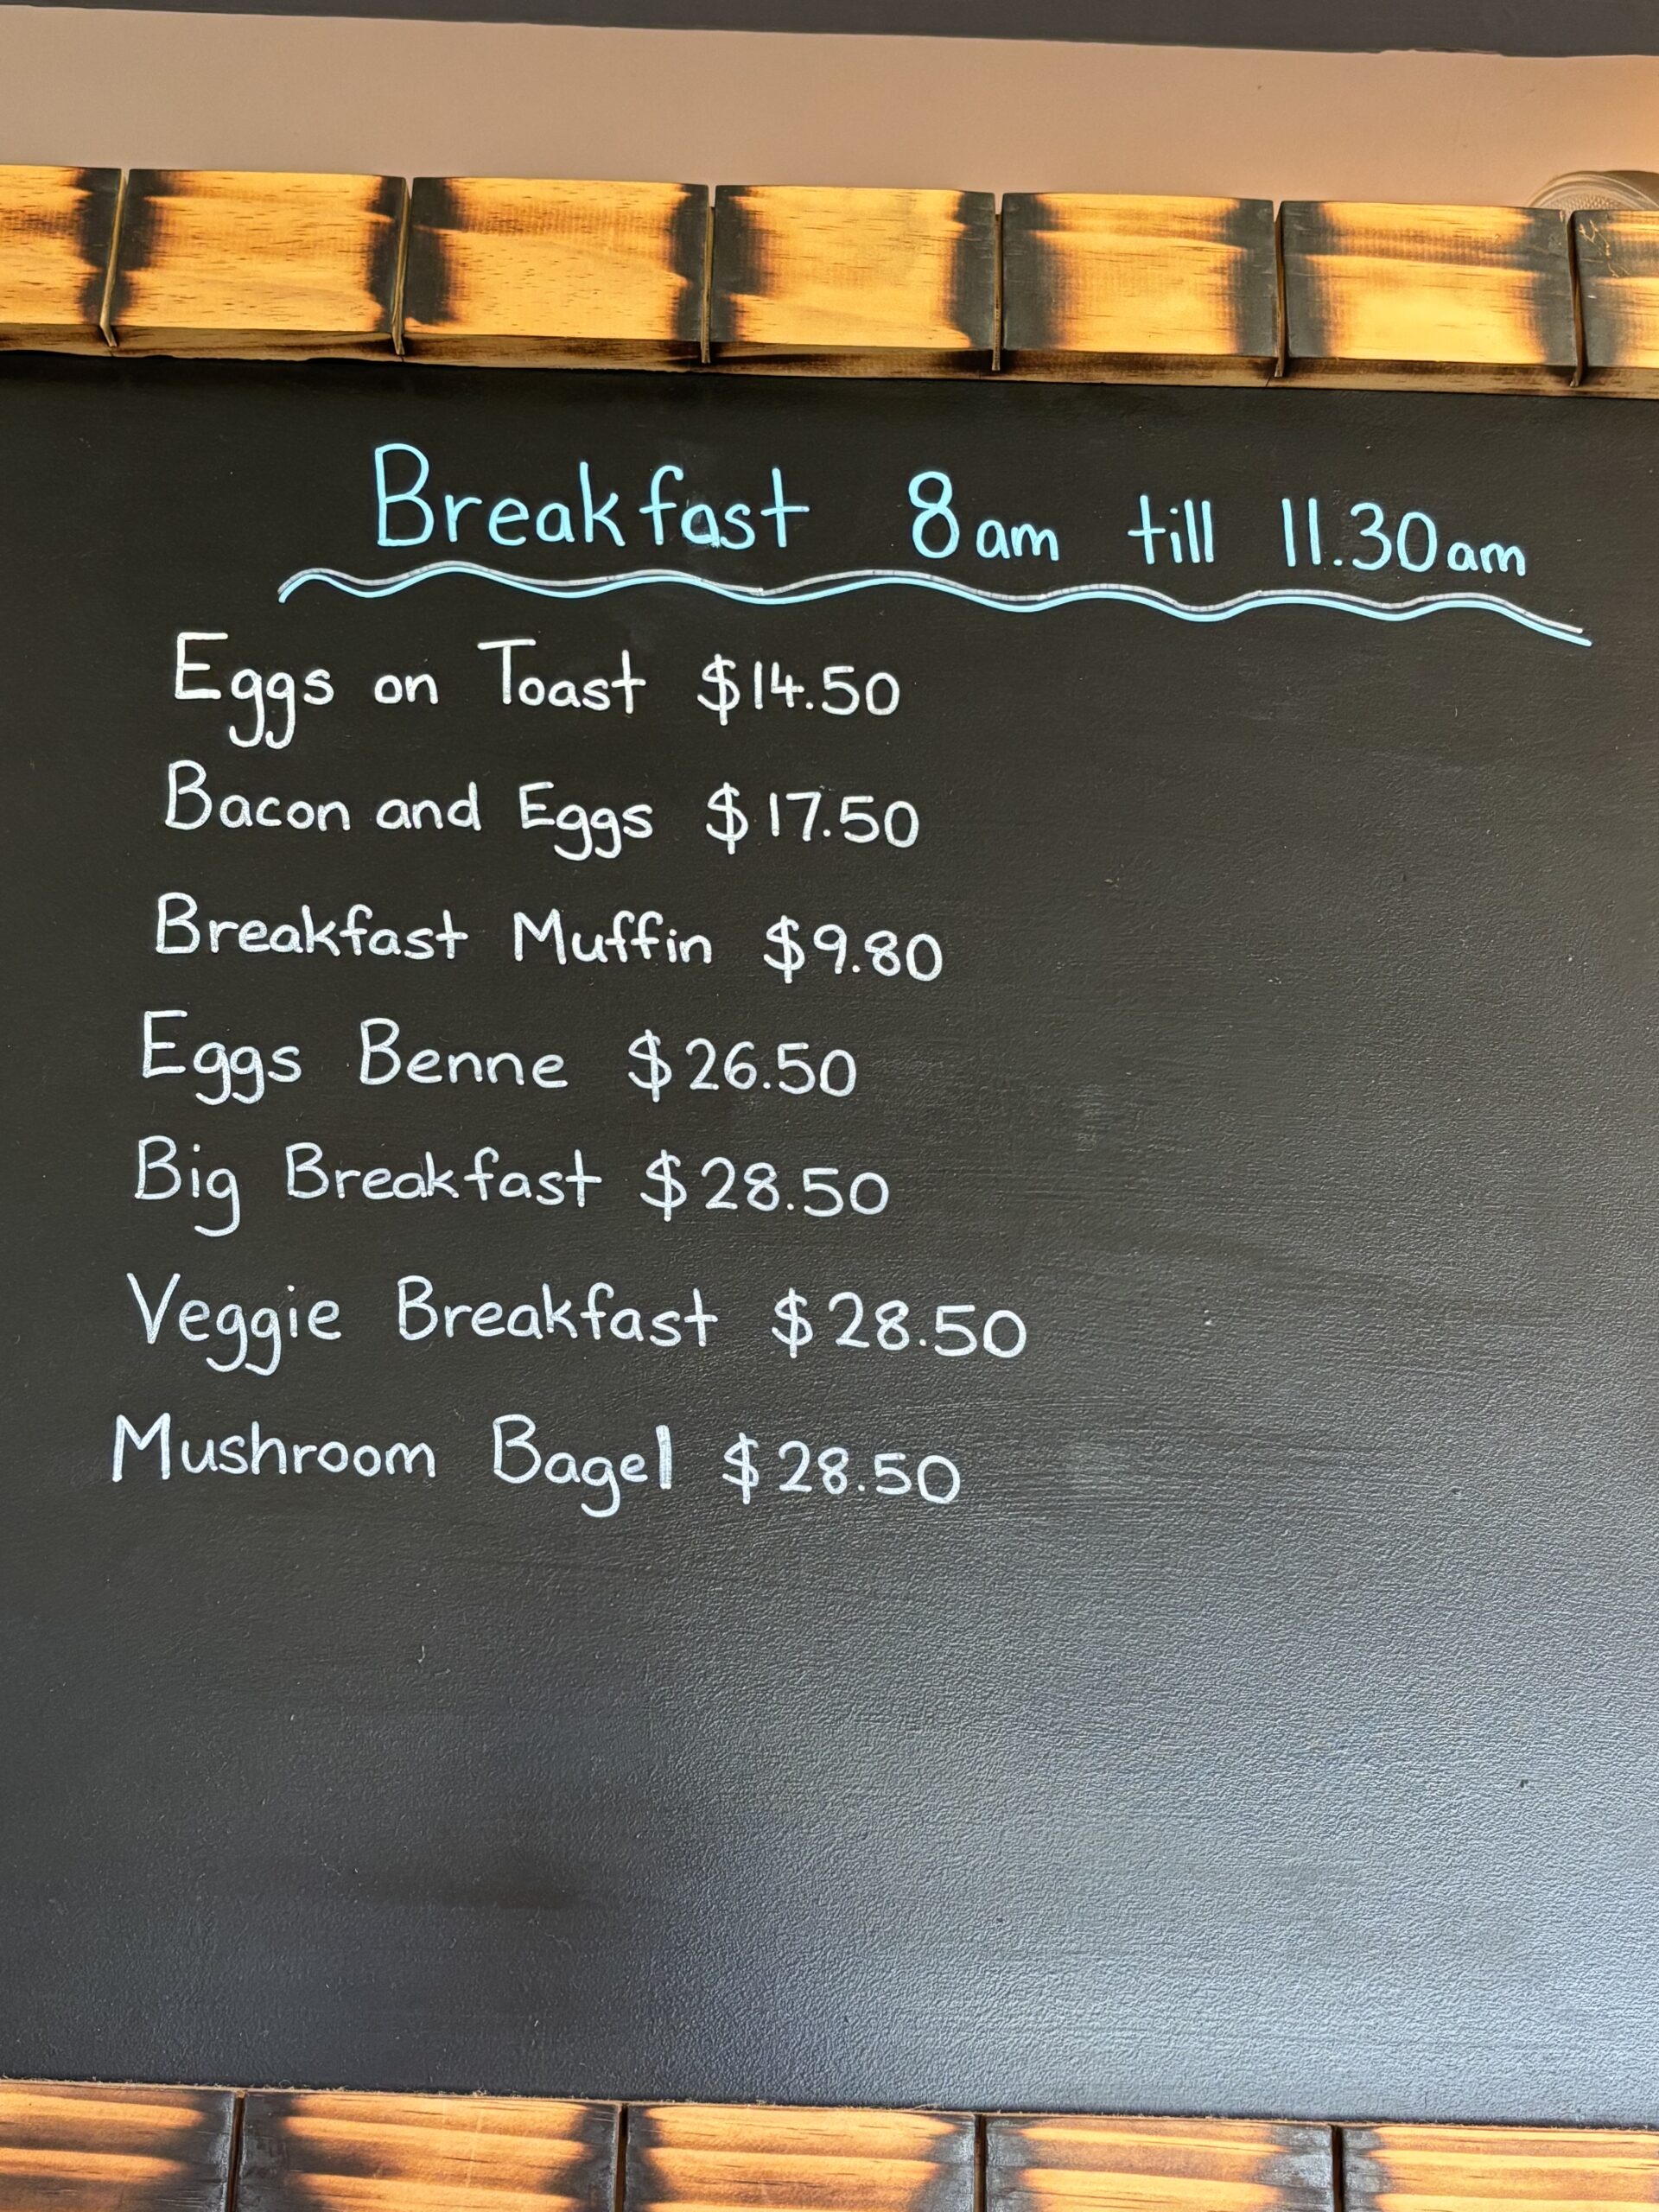 Breakfast 8am till 11.30am
Eggs on Toast $14.50
Bacon and Eggs $17.50
Breakfast Muffin $9.80
Eggs Benne $26.50
Big Breakfast $28.50
Veggie Breakfast $28.50
Mushroom Bagel $28.50